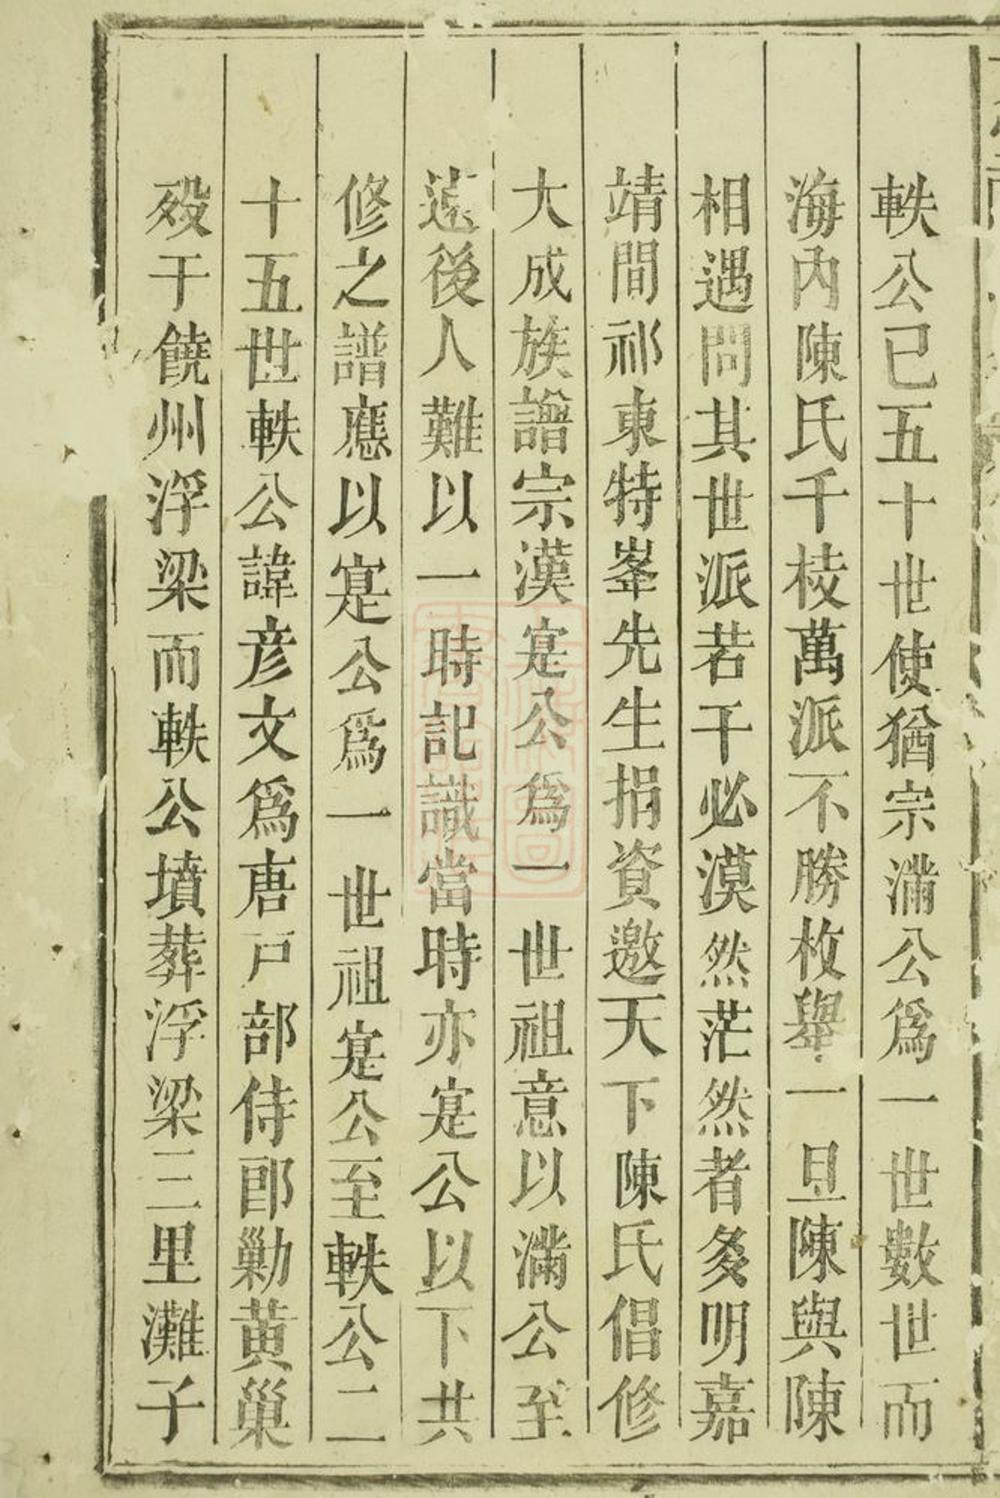 軼公已五十世使猶宗滿公爲一世數世而
海內陳氏千棱萬派不勝枚舉一旦陳與陳
相遇問其世派若干必漠然茫然者多明嘉
靖間祁東特峯先生捐資邀天下陳氏倡修
大成族譜宗漢寔公爲一世祖意以滿公至
遠後人難以一時記識當時亦寔公以下共
修之譜應以寔公爲一世祖寔公至軼公二
十五世軼公諱彥文爲唐戸部侍郎勦黃巢
歿于饒州浮梁而軼公墳葬浮梁三里灘子